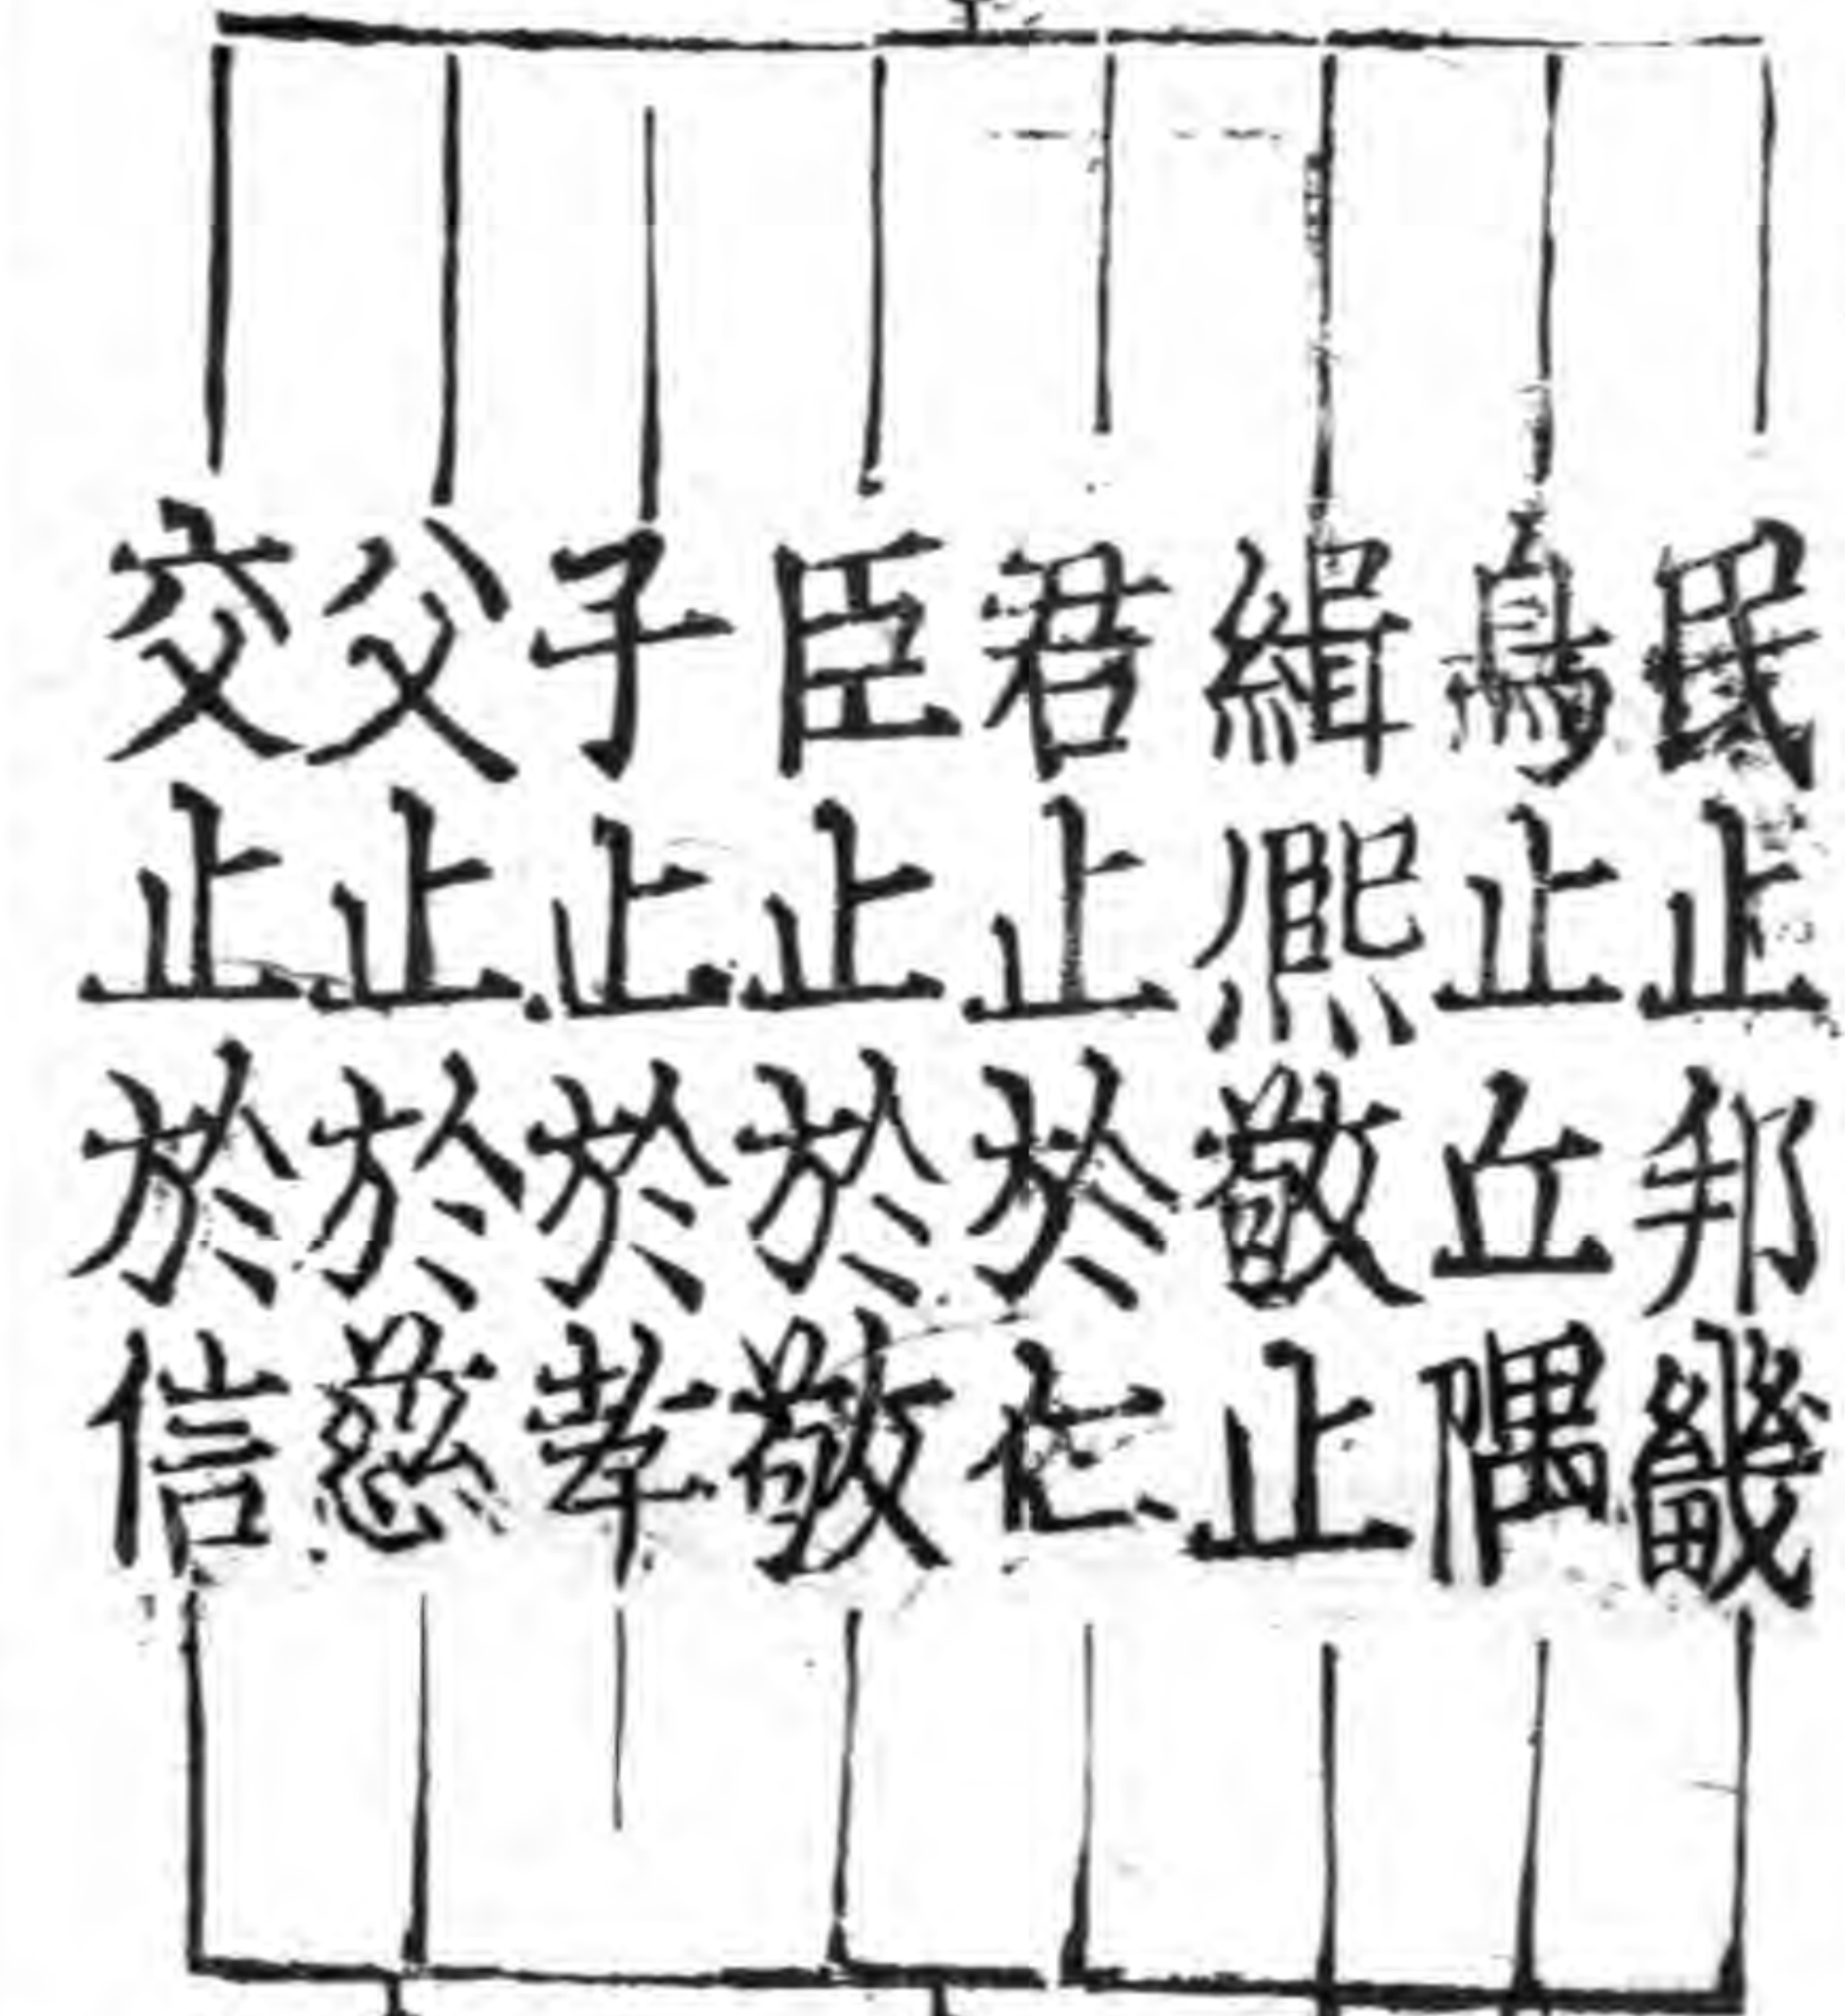 民止邦畿
鳥止丘隅
緝熙敬止
君止於仁
臣止於敬
子止於孝
父止於慈
交止於信